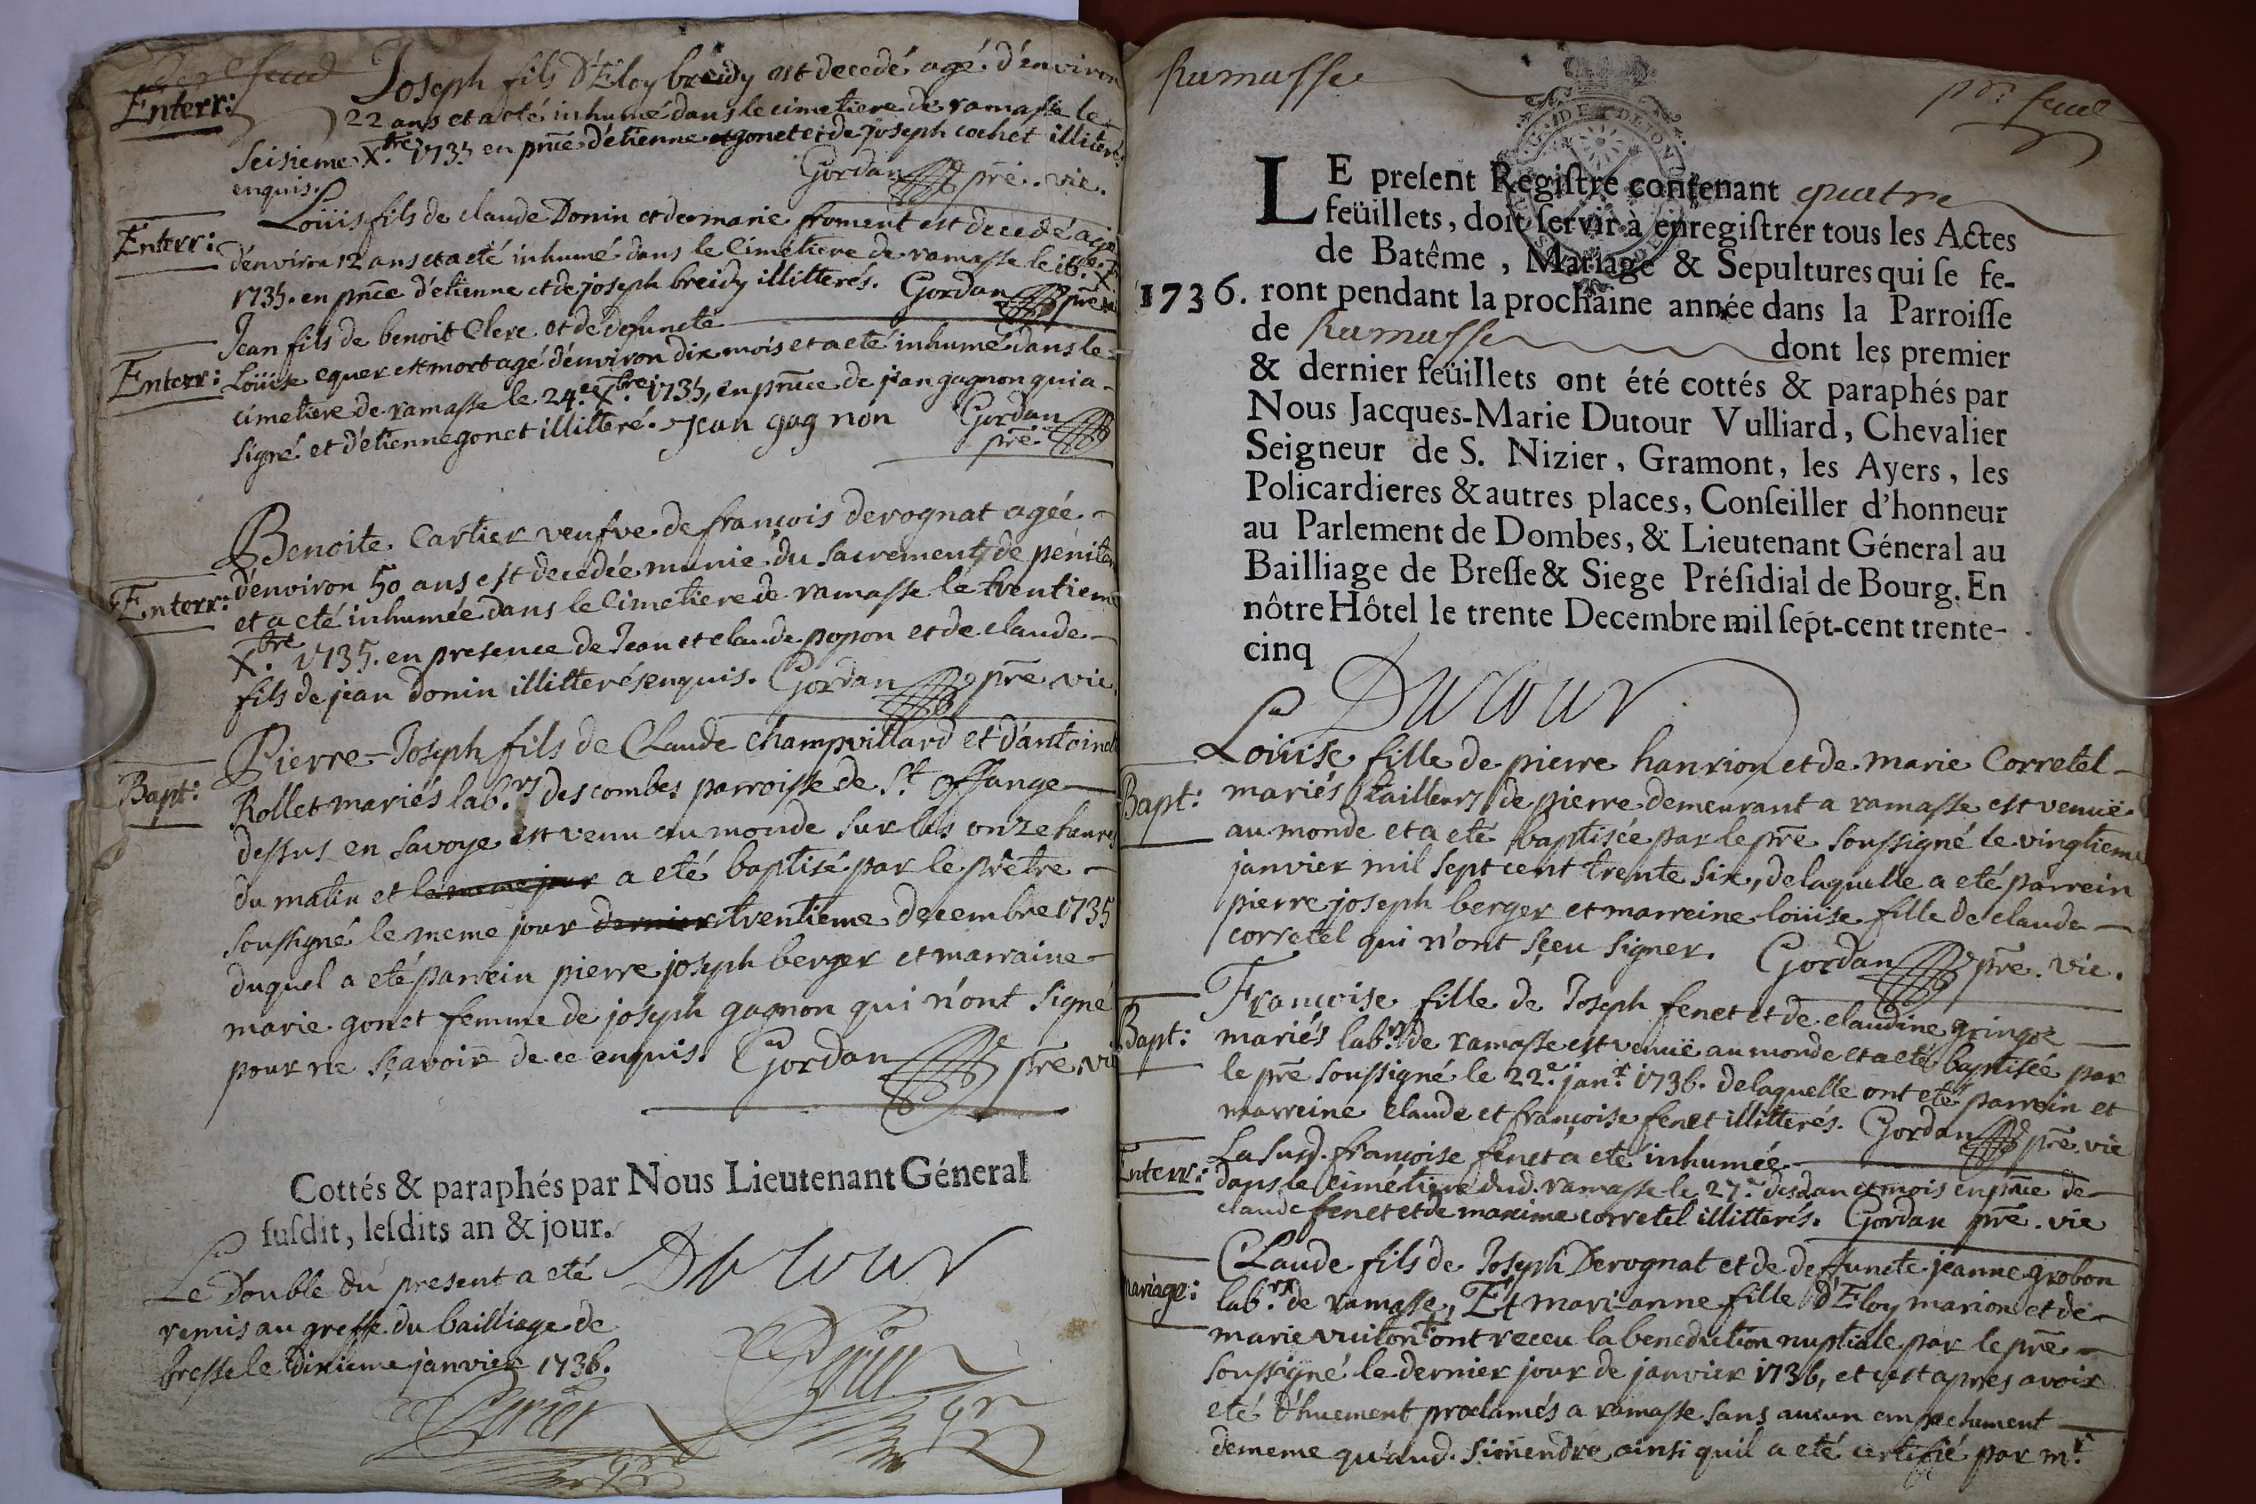 Joseph fils D'Eloy breidy est decedé agé d'environ
Enterr:
22 ans et a eté inhumé dans le cimetiere de ramasse le
seisieme Xbre 1735 en pñce d'étienne gonet et de Joseph cochet illiterés
enquis. Gordan pre. vic.
Loüis fils de claude Donin et de marie froment est decedé agé
Enterr:
d'environ 12 ans et a eté inhumé dans le Cimétiere de ramasse le 16e X
1735. en pñce d'etienne et de joseph breidy illitterés. Gordan pre
Jean fils de benoit Clerc et de defuncte
Enterr:
Loüise equer est mort agé d'environ dix mois et a eté inhumé dans le
cimetiere de ramasse le 24e Xbre 1735, en pñce de jean gagnon qui a
signé et d'etienne gonet illitteré. Jean gagnon Gordan
pre
Benoite Cartier veufve de françois derognat agée
Enterr:
d'environ 50 ans est decedée munie du sacrement de peniten
et a eté inhumée dans le Cimetiere de ramasse le trentieme
Xbre 1735. en presence de Jean et claude popon et de claude
fils de jean donin illitterés enquis. Gordan pre vic
Pierre-Joseph fils de Claude champvillard et d'antoinet
Bapt:
Rollet mariés labrs des combes parroisse de St Offange
dessus en savoye est venu au monde sur les onze heures
du matin et le meme jour a eté baptisé par le prêtre
soussigné le meme jour dernier trentieme decembre 1735
duquel a eté parrein pierre joseph berger et marraine
marie gonet femme de joseph gagnon qui n'ont signé
pour ne sçavoir de ce enquis. Gordan pre vi
Cottés & paraphés par Nous Lieutenant Géneral
susdit, lesdits an & jour.
Dutour
Le Double du present a eté
remis au greffe du bailliage de
bresse le dixieme janvier 1736.
Ramasse
pr feuil
LE present Registre contenant quatre
feüillets, doit servir à enregistrer tous les Actes
de Batême, Mariage & Sepultures qui se fe-
1736. ront pendant la prochaine année dans la Parroisse
de Ramasse dont les premier
& dernier feüillets ont été cottés & paraphés par
Nous Jacques-Marie Dutour Vulliard, Chevalier
Seigneur de S. Nizier, Gramont, les Ayers, les
Policardieres & autres places, Conseiller d'honneur
au Parlement de Dombes, & Lieutenant Géneral au
Bailliage de Bresse & Siege Présidial de Bourg. En
nôtre Hôtel le trente Decembre mil sept-cent trente-
cinq
Dutour
Loüise fille de pierre hanrion et de marie Corretel
Bapt:
mariés tailleurs de pierre demeurant a ramasse est venuë
au monde et a eté baptisée par le pre soussigné le vingtieme
janvier mil sept cent trente six, de laquelle a eté parrein
pierre joseph berger et marreine loüise fille de claude
corretel qui n'ont sçeu signer. Gordan pre. vic.
Françoise fille de Joseph fenet et de claudine gringoz
Bapt:
mariés labrs de ramasse est venuë au monde et a eté baptisée par
le pre soussigné le 22e janr 1736. de laquelle ont eté parrein et
marreine claude et françoise fenet illitterés. Gordan pre vic
La susd. françoise fenet a eté inhumée
Enterr:
dans le cimétiere dud. ramasse le 27e desd an et mois en pñce de
claude fenet et de maxime corretel illitterés. Gordan pre. vic
Claude fils de Joseph Derognat et de deffuncte jeanne grobon
mariage:
labrs de ramasse, Et mari-anne fille d'Eloy marion et de
marie vuiton ont receu la benediction nuptiale par le pre
soussigné le dernier jour de janvier 1736, et c'est apres avoir
eté d'huement proclamés a ramasse sans aucun empechement
de meme qu'aud. simendre ainsi quil a eté certifié par mr